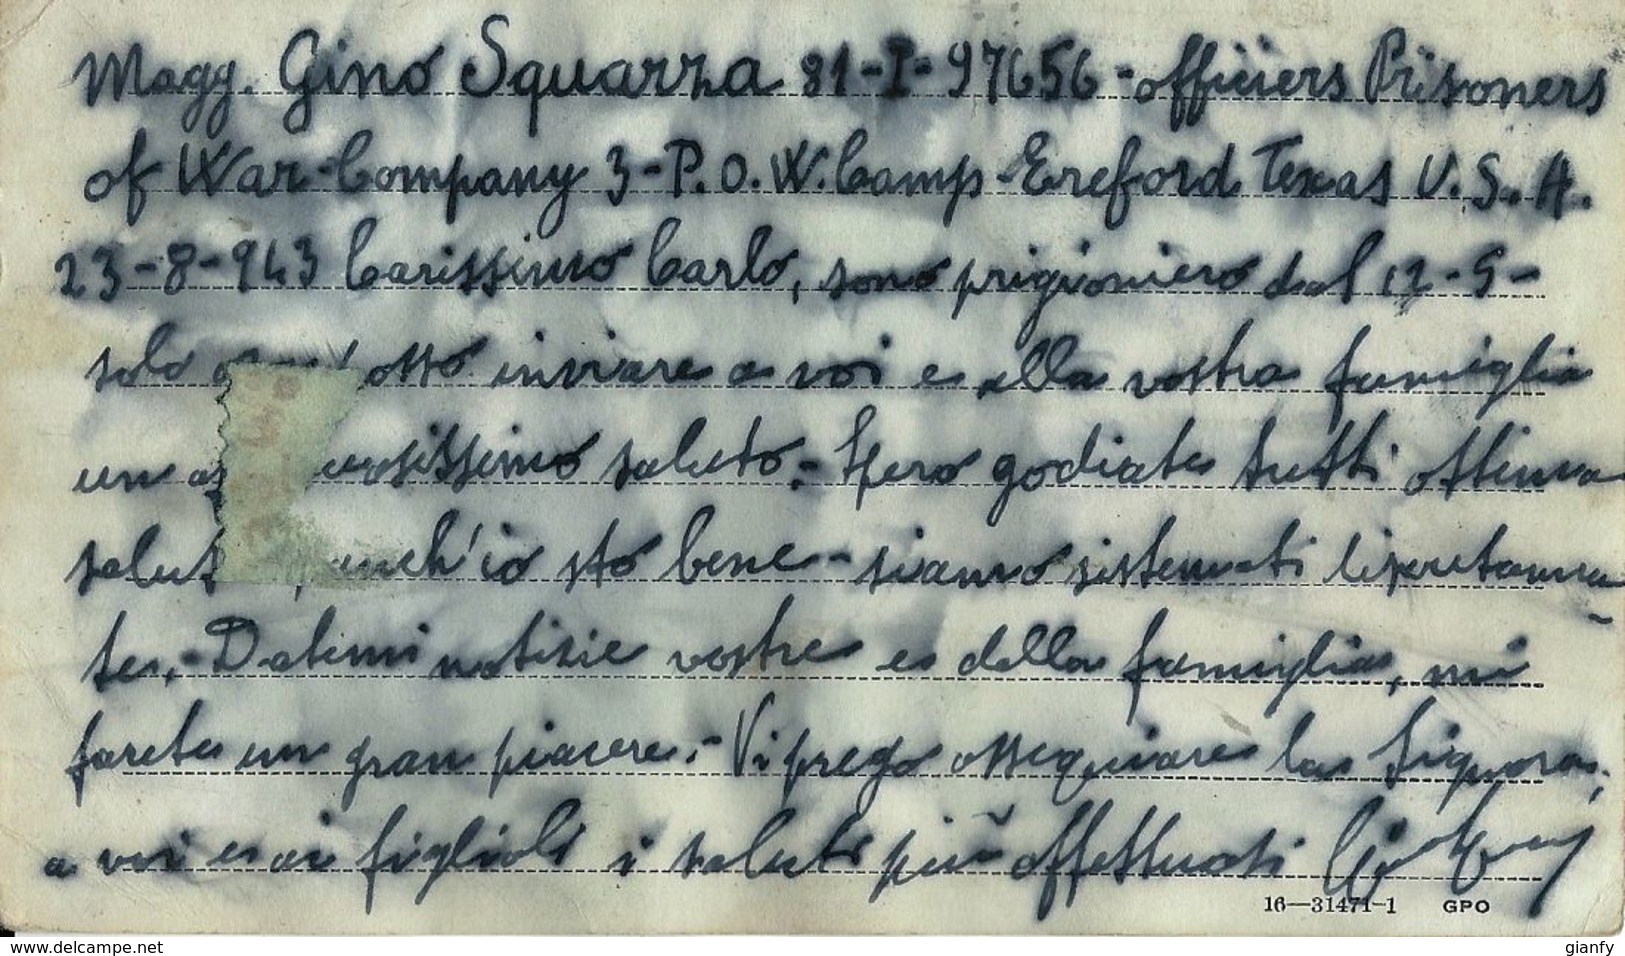 Magg. Gino Squarza 81-I-97656-officiers Prisoners
of War-Company 3-P.O.W. Camp-Ereford Texas U.S.A.
23-8-943 Carissimo Carlo, sono prigioniero dal 12-5-
solo inviare a voi e alla vostra famiglia
un saluto.- Spero godiate tutti ottima
anch'io sto bene-siamo sistemati discretamen
te.-Datemi notizie vostre e della famiglia, mi
farete un gran piacere.-Vi prego ossequiare la Signora,
a voi e ai figlioli i saluti più affettuosi
16—31471-1 GPO
www.delcampe.net
gianfy